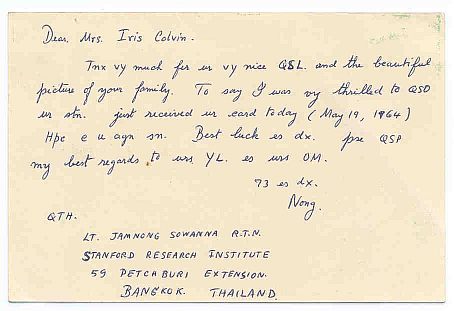 Dear. Mrs. Iris Colvin.
Tnx vy much fer ur vy nice QSL. and the beautiful
picture of your family. To say I was vy thrilled to QSO
ur stn. just received ur card today (May 19, 1964)
Hpe c u agn sn. Best luck es dx. pse QSP
my best regards to urs YL. es urs OM.
73 es dx.
Nong.
QTH.
LT. JAMNONG SOWANNA R.T.N.
STANFORD RESEARCH INSTITUTE
59 PETCHBURI EXTENSION.
BANGKOK. THAILAND.